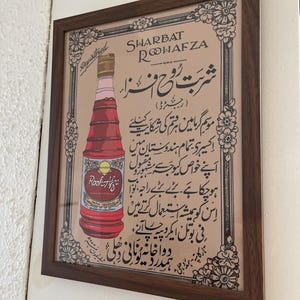 SHARBAT
ROOHAFZA
شربت روح افزا
(رجسٹرڈ)
موسم گرما میں ہر قسم کی شکایت کیلئے
اکسیر ہی تمام ہندوستان میں
اپنے خواص کیوجہ سے مقبول
ہوچکا ہے بچے بڑے
اس کو ہمیشہ استعمال کرتے ہیں
فی بوتل ایک روپیہ
ہمدرد دواخانہ یونانی دہلی
RoohAfza